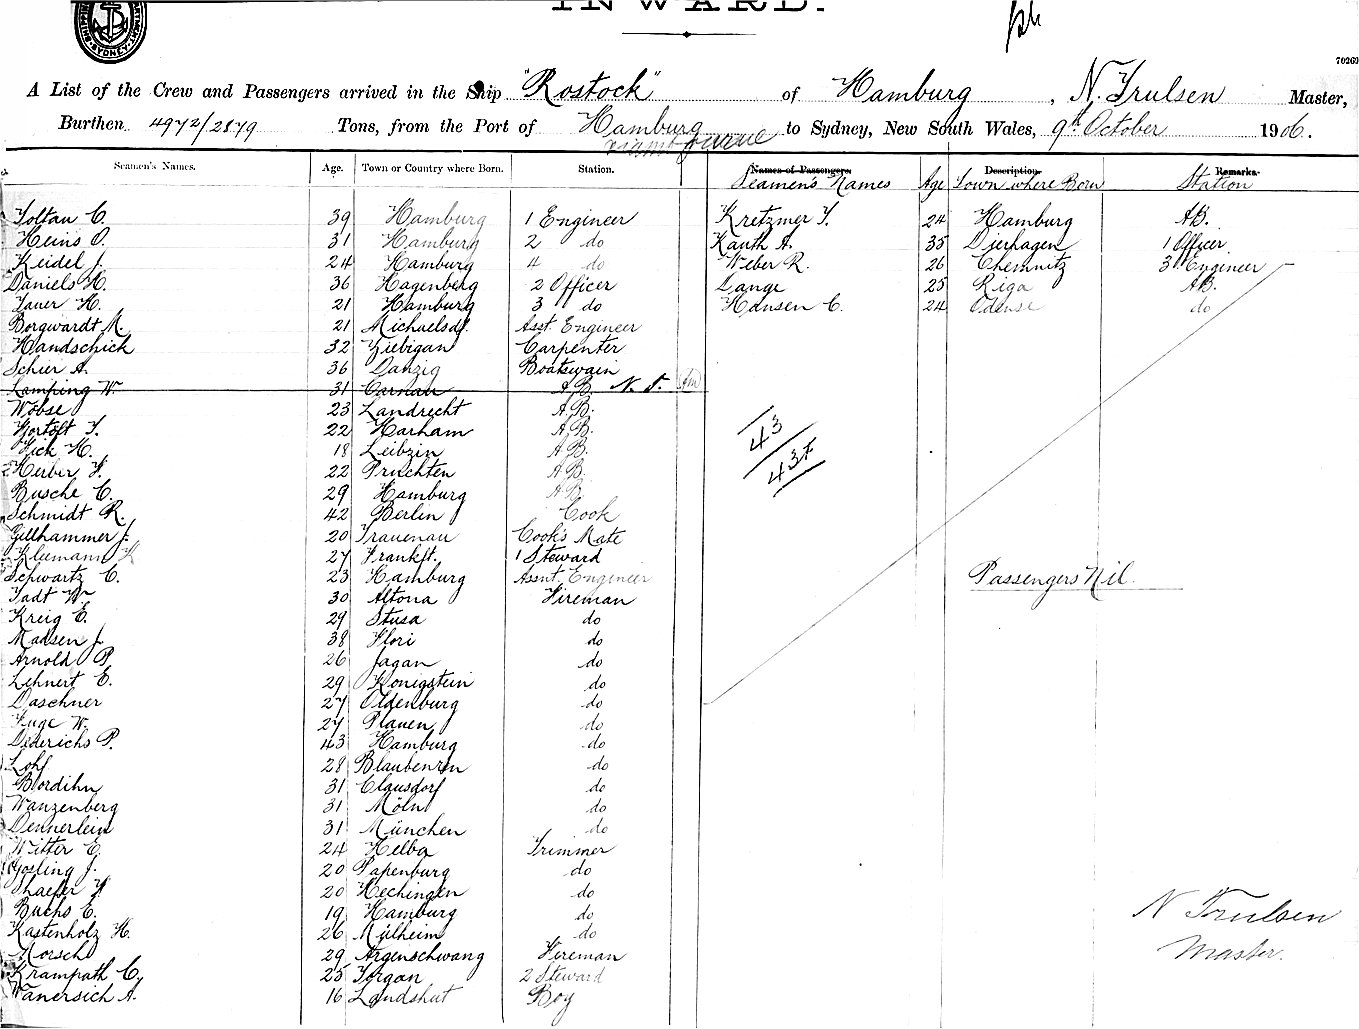 INWARD.
SYDNEY
70269
A List of the Crew and Passengers arrived in the Ship "Rostock" of Hamburg, N. Trulsen Master,
Burthen 4972/2879 Tons, from the Port of Hamburg to Sydney, New South Wales, 9th October 1906.
Seamen's Names. Age. Town or Country where Born. Station.
Names of Passengers. Age Description. Remarks.
Seamens Names Town where Born Station
Soltau C. 39 Hamburg 1 Engineer
Heins O. 31 Hamburg 2 do
Keidel J. 24 Hamburg 4 do
Daniels H. 36 Hagenberg 2 Officer
Tauer H. 21 Hamburg 3 do
Borgwardt M. 21 Michaelsdf. Asst. Engineer
Handschick 32 Ziebigan Carpenter
Schier A. 36 Danzig Boatswain
Lamping W. 31 Carnan A.B. N. T.
Wobse 23 Landrecht A.B.
Hortoft T. 22 Harham A.B.
Fick H. 18 Leibzin A.B.
Herber F. 22 Pruchten A.B.
Busche C. 29 Hamburg A.B.
Schmidt R. 42 Berlin Cook
Gillhammer J. 20 Frauenau Cook's Mate
Kleemann 27 Frankft. 1 Steward
Schwartz C. 23 Hamburg Assnt. Engineer
Tadt W 30 Altona Fireman
Kreig E. 29 Stusa do
Madsen J. 38 Flori do
Arnold P. 26 Jagan do
Lehnert E. 29 Konigstein do
Daschner 27 Oldenburg do
Fuge W. 27 Plauen do
Dederichs P. 43 Hamburg do
Lohf 28 Blaubenren do
Bordihn 31 Clausdorf do
Wanzenberg 31 Möln do
Dennerlein 31 München do
Witter E. 24 Helba Trimmer
Gosling J. 20 Papenburg do
Shaefer F 20 Hechingen do
Buchs E. 19 Hamburg do
Kastenholz H. 26 Mülheim do
Morsch 29 Argenschwang Fireman
Krampath C. 25 Torgan 2 Steward
Wanersich A. 16 Landshut Boy
Kretzmer T. 24 Hamburg A.B.
Kauth A. 35 Dierhagen 1 Officer
Weber R. 26 Chemnitz 3 Engineer
Lange 25 Riga A.B.
Hansen C. 24 Odense do
43
437
Passengers Nil.
N Trulsen
Master.